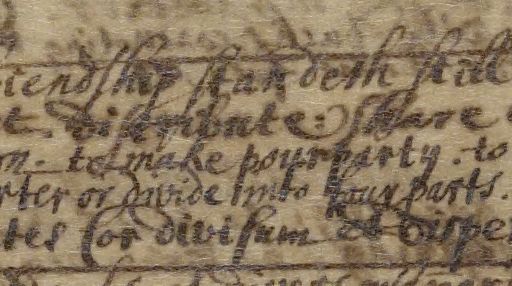 iendship standeth still
t. distribute: share
on. to make pourparty. to
rter or divide into four parts.
tes for divisum et disper